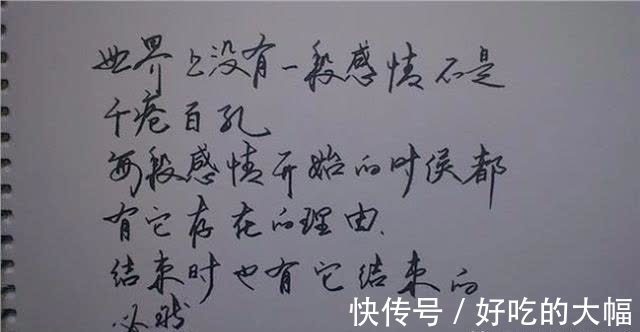 世界上没有一段感情不是
千疮百孔
每段感情开始的时侯都
有它存在的理由.
结束时也有它结束的
必然
快传号 / 好吃的大幅